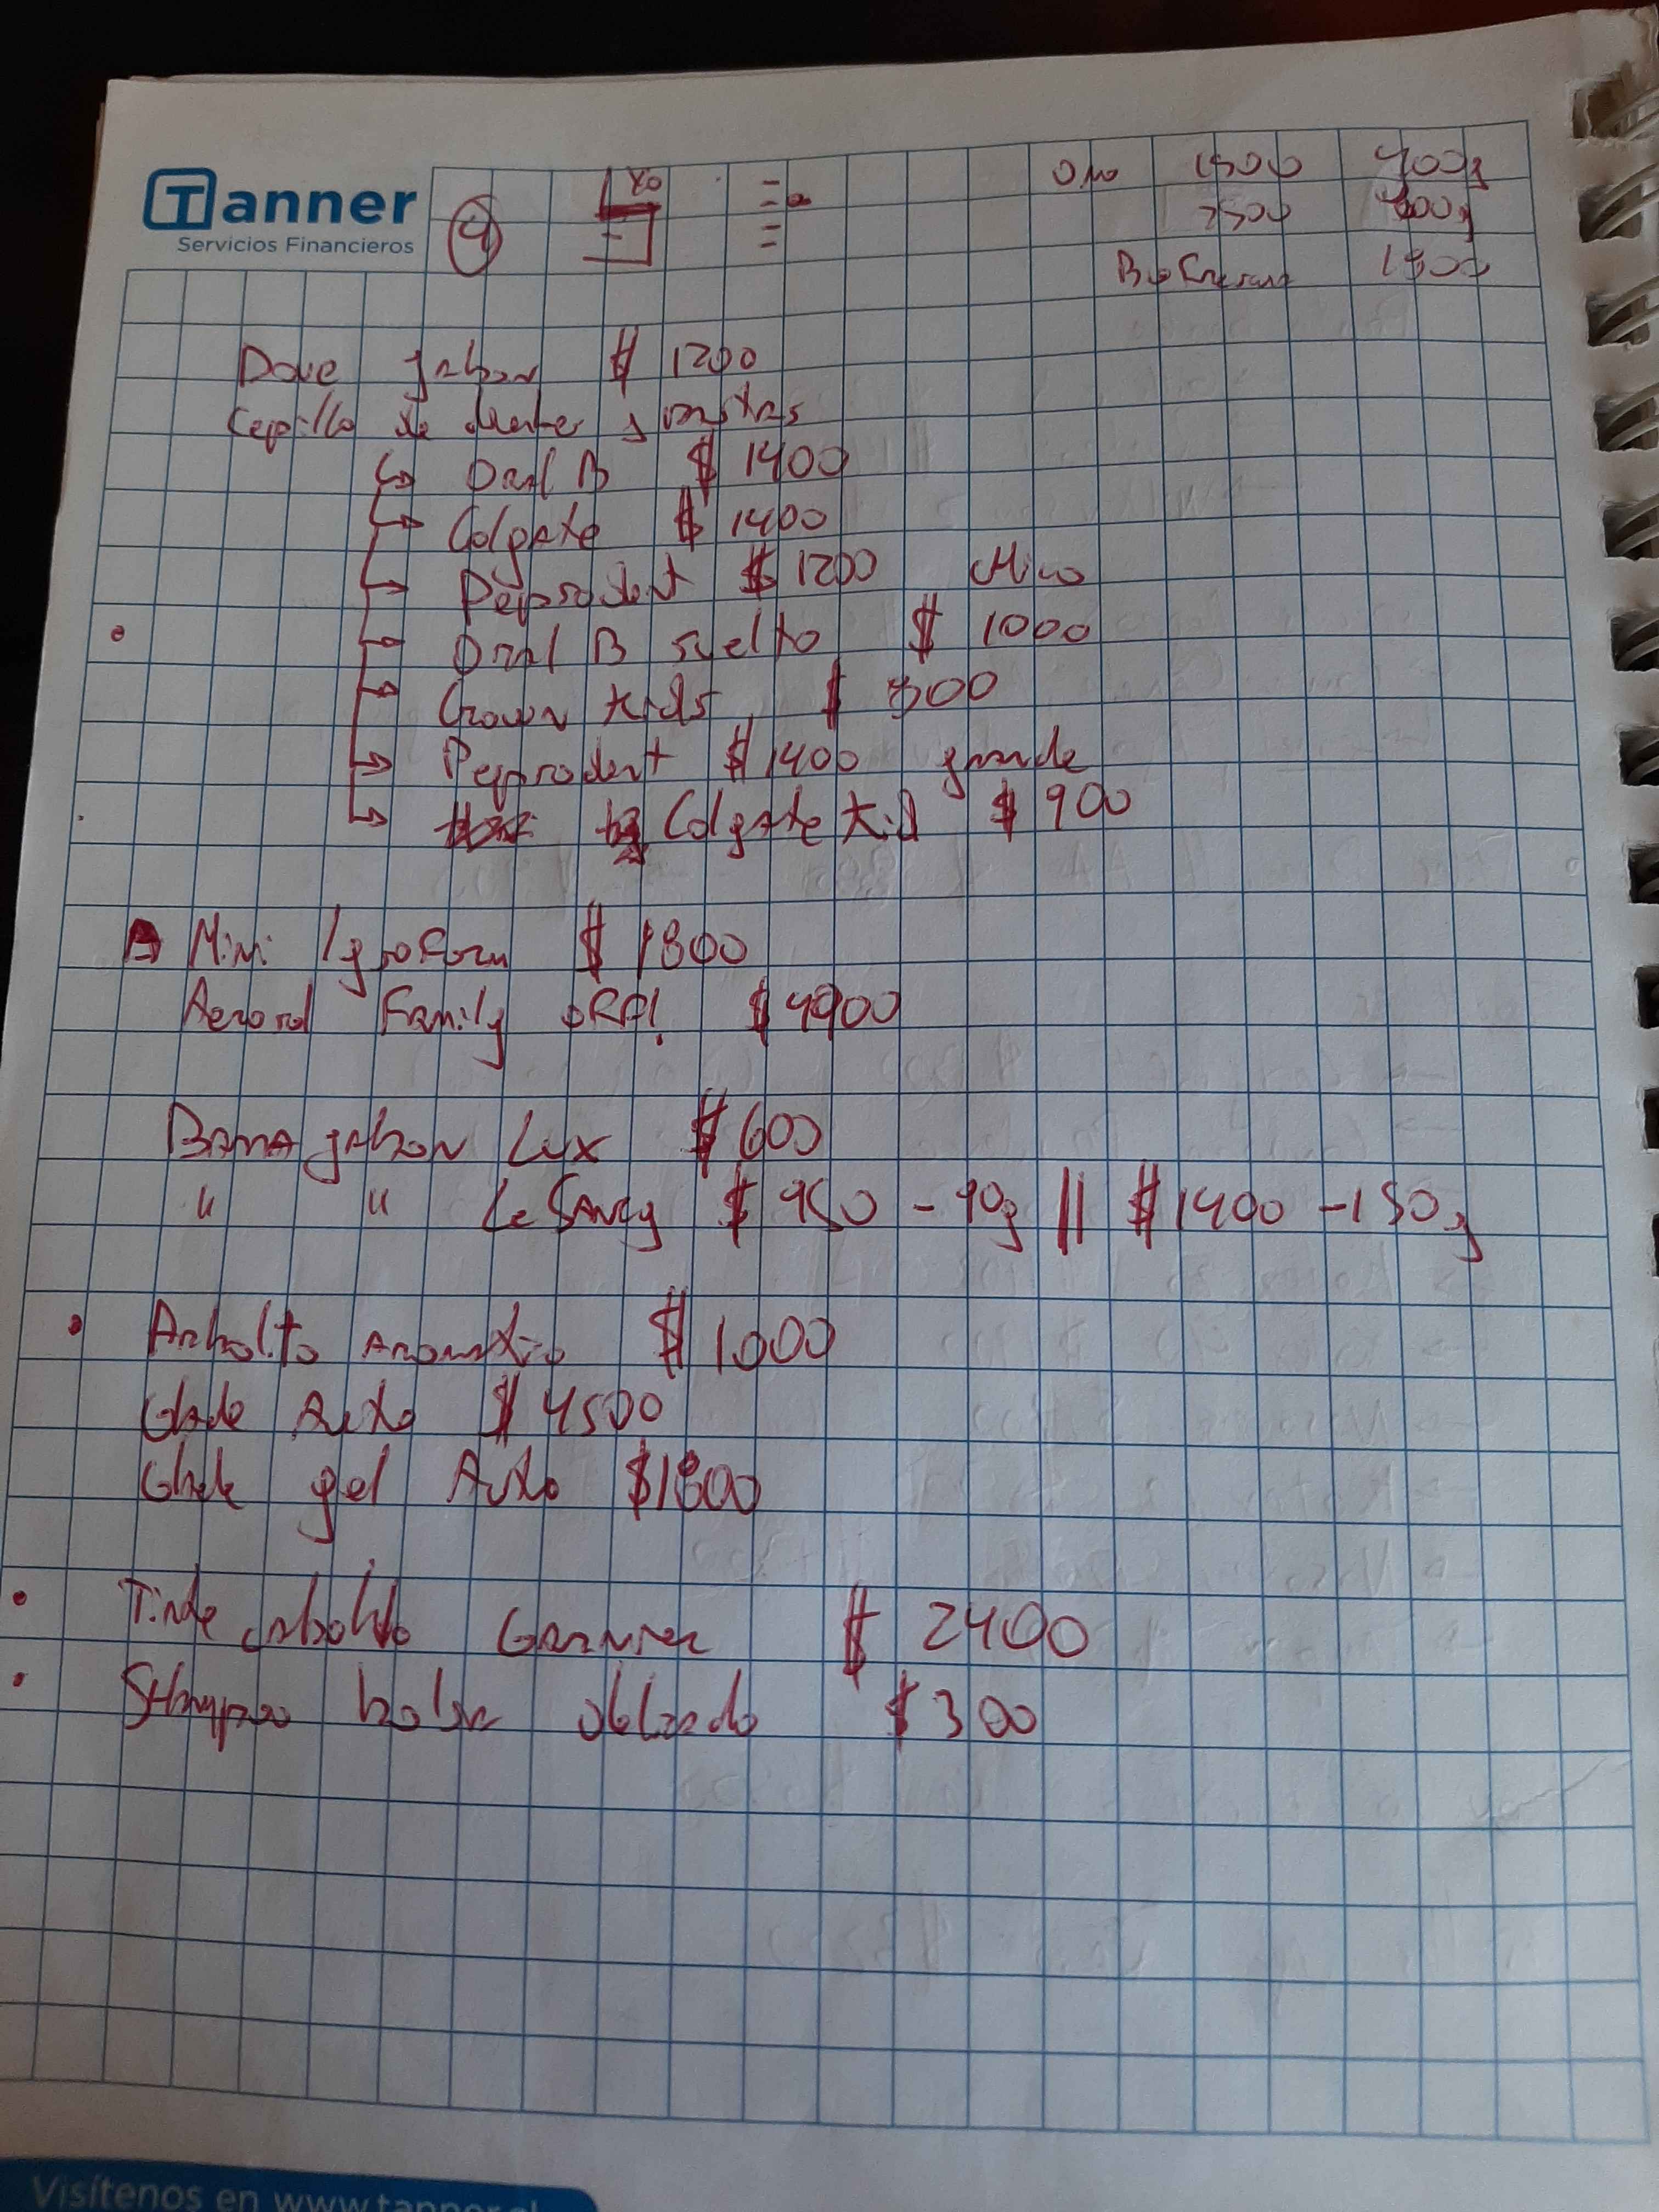 Tanner
Servicios Financieros
9
Omo 1500 400g
2500 800g
Bio Frescura 1500
Dove jabon $ 1200
Cepillo de diente y pastas
Oral B $ 1400
Colgate $ 1400
Pepsodent $ 1200 chico
Oral B suelto $ 1000
Crown Kids $ 800
Pepsodent $ 1400 grande
Colgate Kid $ 900
Mini lysoform $ 1800
Aerosol Family $ 4900
Barra jabon Lux $ 600
" " Le Sancy $ 950 - 90g || $ 1400 - 150g
Arbolito aromatico $ 1000
Glade Auto $ 4500
Glade gel Auto $1800
Tinte Garnier $ 2400
Shampoo bolsa $ 300
Visítenos en www.tanner.cl